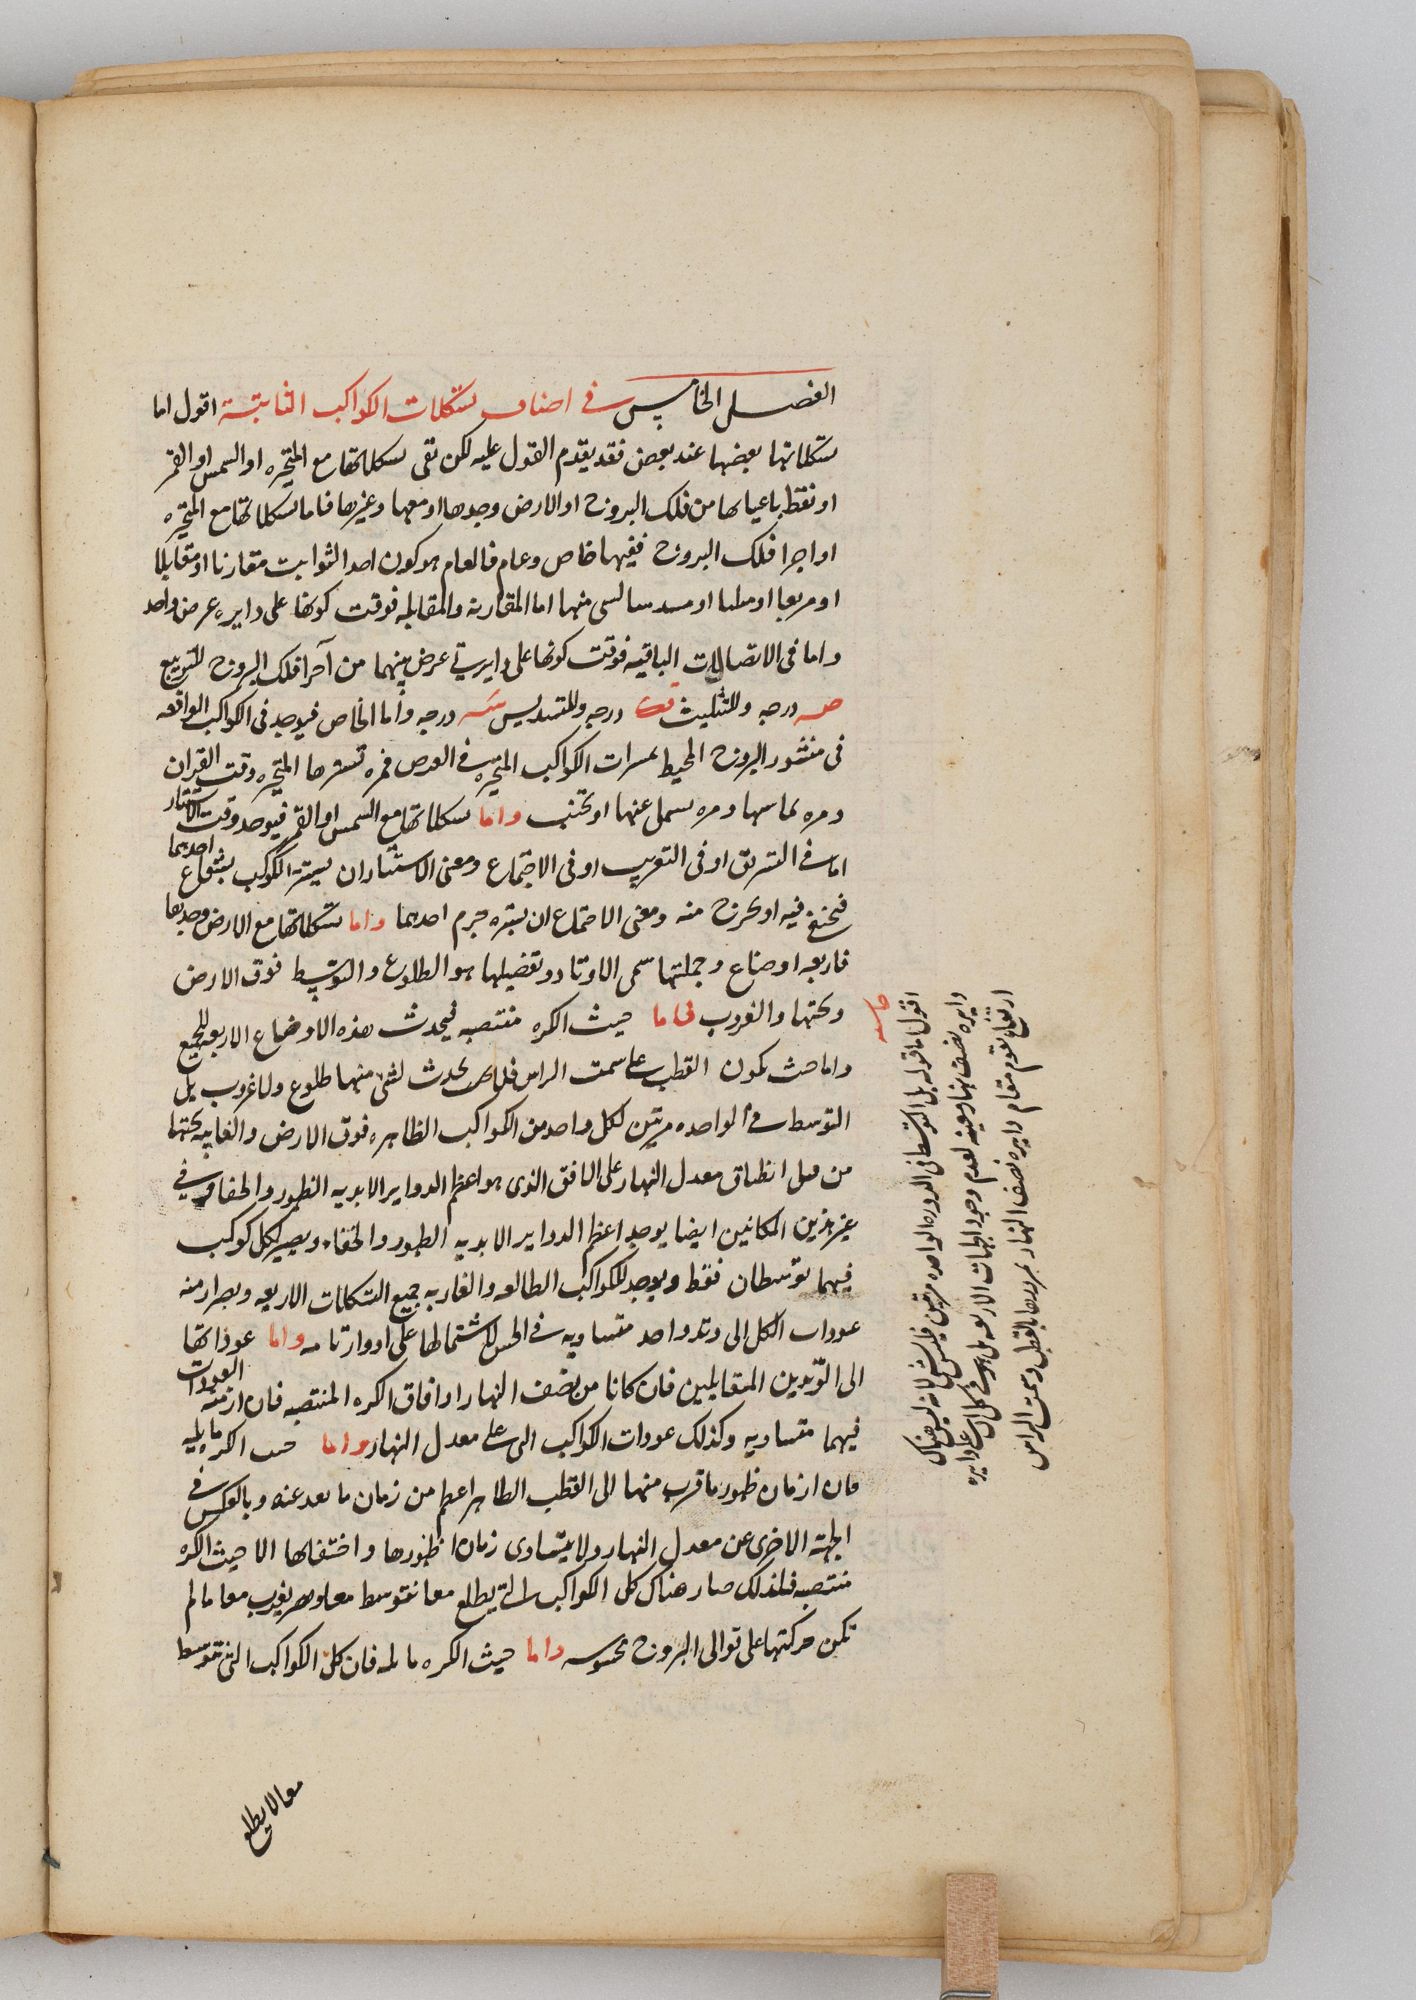 الفصل الخامس في اصناف تشكلات الكواكب الثابتة اقول اما
تشكلاتها بعضها عند بعض فقد يقدم القول عليه لكن بقى تشكلاتها مع المتحيره او الشمس او القمر
او نقط باعيانها من فلك البروج او الارض وحدها او معها وغيرها فاما تشكلاتها مع المتحيره
او اجزا فلك البروج ففيها خاص وعام فالعام هو كون احد الثوابت مقارنا او مقابلا
او مربعا او مثلثا او مسدسا لشى منها اما المقارنه والمقابله فوقت كونها على دايره عرض واحد
واما فى الاتصالات الباقيه فوقت كونها على دايرتي عرض بينهما من اجزا فلك البروج للتربيع
ص درجه وللتثليث قك درجه وللتسديس س درجه واما الخاص فيوجد فى الكواكب الواقعه
فى منشور البروج المحيط بممرات الكواكب المتحيره في العرض فمره تسترها المتحيره وقت القران
ومره تماسها ومره تشمل عنها او تجنب واما تشكلاتها مع الشمس او القمر فيوجد وقت الاستتار
اما في التشريق او فى التغريب او فى الاجتماع ومعنى الاستتار ان يستتر الكوكب بشعاع احدهما
فيختفي فيه او يخرج منه ومعنى الاجتماع ان يستره جرم احدهما واما تشكلاتها مع الارض وحدها
فاربعه اوضاع وجملتها تسمى الاوتاد وتفضيلها هو الطلوع والتوسط فوق الارض
وتحتها والغروب فاما حيث الكره منتصبه فيحدث هذه الاوضاع الاربعه للجميع
واما حيث يكون القطب على سمت الراس فلا يحدث لشى منها طلوع ولا غروب بل
التوسط في الواحده مرتين لكل واحد من الكواكب الظاهره فوق الارض والغايبه تحتها
من قبل انطباق معدل النهار على الافق الذى هو اعظم الدواير الابديه الظهور والخفا وفي
غير هذين المكانين ايضا يوجد اعظم الدواير الابديه الظهور والخفاء ويصير لكل كوكب
فيهما توسطان فقط ويوجد للكواكب الطالعه والغاربه جميع التشكلات الاربعه ويصير ازمنه
عودات الكل الى وتد واحد متساويه في الحس لاشتمالها على ادوار تامه واما عوداتها
الى الوتدين المتقابلين فان كانا من نصف النهار او افاق الكره المنتصبه فان ازمنه العودات
فيهما متساويه وكذلك عودات الكواكب التى على معدل النهار واما حيث الكره مايله
فان ازمان ظهور ما قرب منها الى القطب الظاهر اعظم من زمان ما بعد عنه وبالعكس في
الجهة الاخرى عن معدل النهار ولا يتساوى زمان ظهورها واختفاها الا حيث الكره
منتصبه فلذلك صار هناك كل الكواكب التي يطلع معا تتوسط معا ويغرب معا ما لم
تكن حركتها على توالى البروج محسوسه واما حيث الكره مايله فان كل الكواكب التى تتوسط
معا لا يطلع
حاشيه
اقول اما قوله بل التوسط فى الدوره الواحده مرتين فليس بشى لانه ليس هناك
دايره نصف نهار معينه لعدم وجود الجهات الاربعه بل هو في كل ان على دايره
ارتفاع تقوم مقام دايره نصف النهار لمرورها بالقطب وسمت الراس